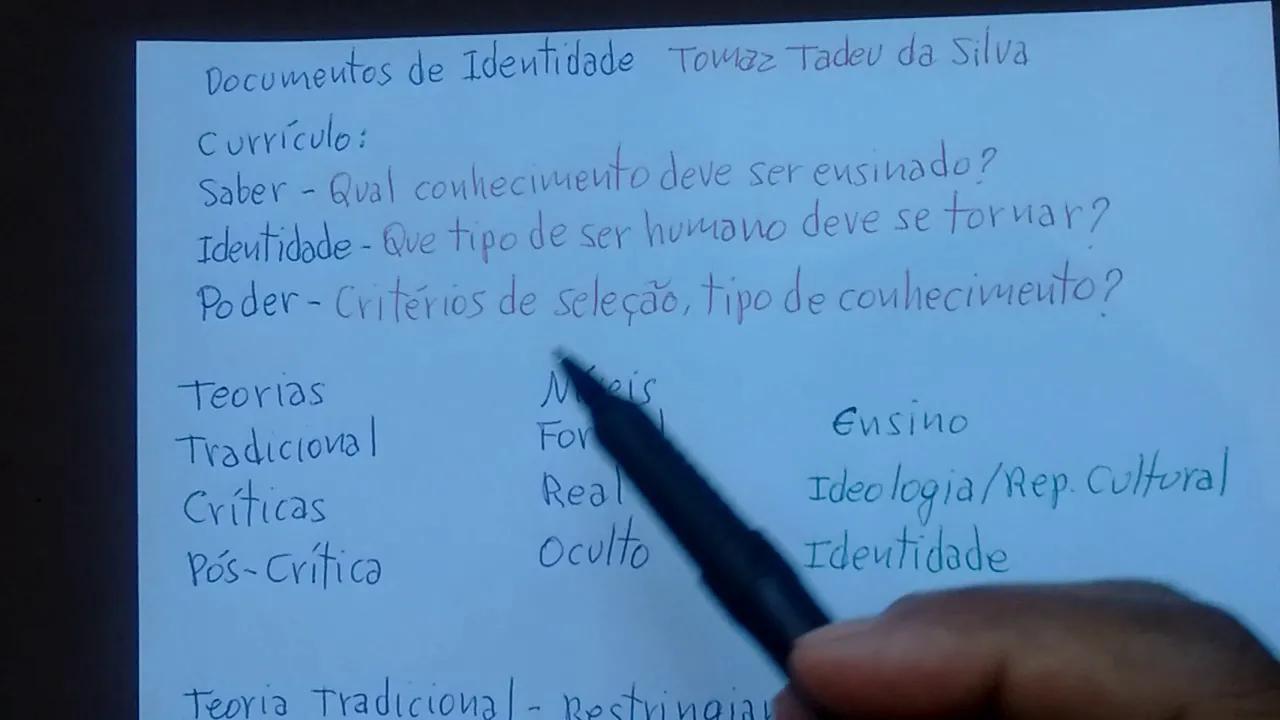 Documentos de Identidade Tomaz Tadeu da Silva
Currículo:
Saber - Qual conhecimento deve ser ensinado?
Identidade - Que tipo de ser humano deve se tornar?
Poder - Critérios de seleção, tipo de conhecimento?
Teorias
Tradicional
Críticas
Pós-Crítica
Real
Oculto
Ensino
Ideologia/Rep. Cultural
Identidade
Teoria Tradicional -